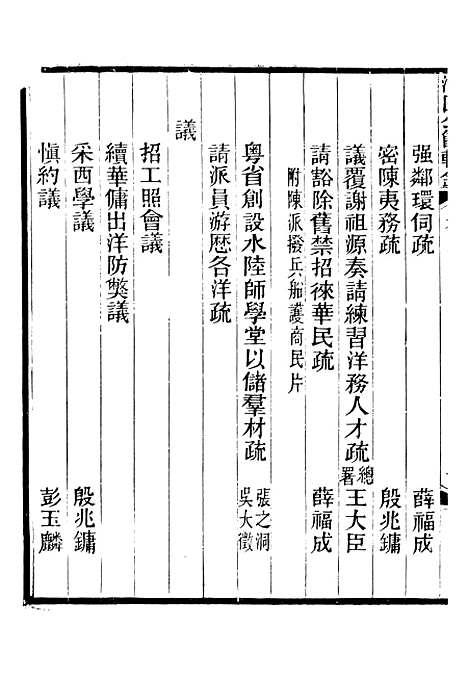 强鄰環伺疏 薛福成
密陳夷務疏 殷兆鏞
議覆謝祖源奏請練習洋務人才疏 總署王大臣
請豁除舊禁招徠華民疏 薛福成
附陳派撥兵船護商民片
粵省創設水陸師學堂以儲羣材疏 張之洞 吳大澂
請派員游歷各洋疏
議
招工照會議
續華傭出洋防獘議
采西學議 殷兆鏞
愼約議 彭玉麟